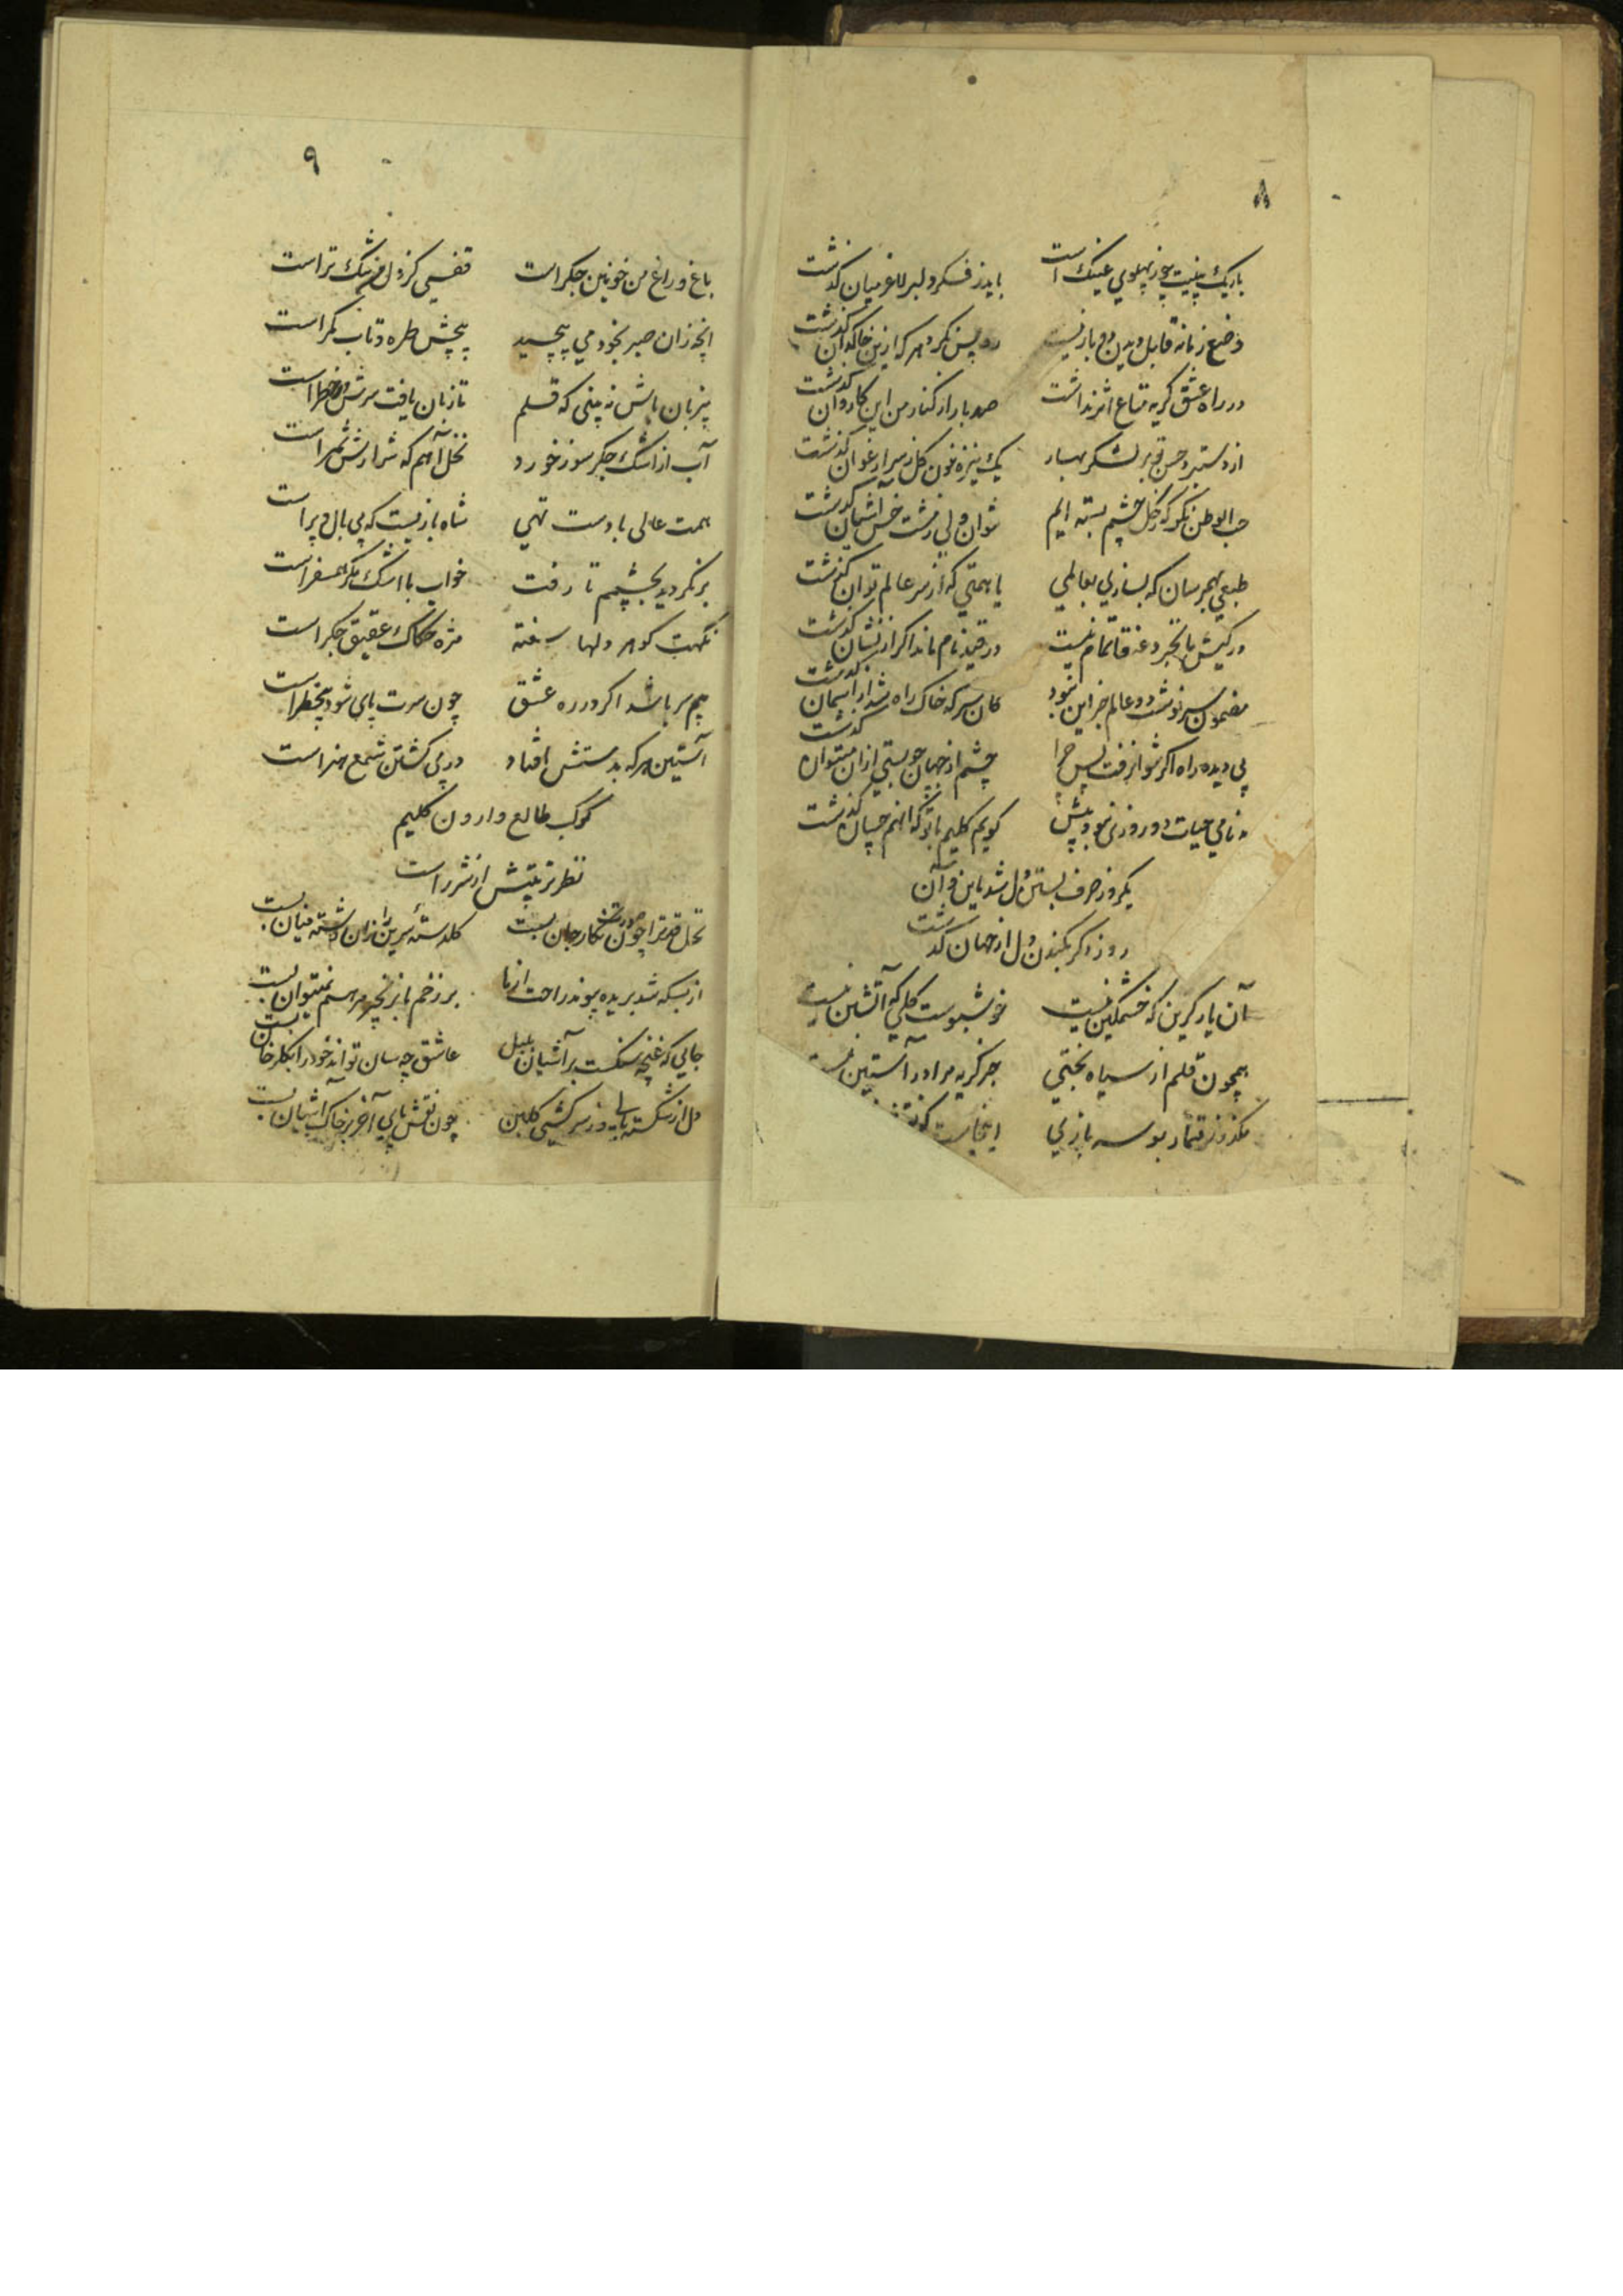 ۸
باریک بینیت چو ز پهلوی عینک است باید ز فکر دلبر لاغر میان گذشت
وضع زمانه قابل دیدن دوبار نیست رو پس نکرد هر که ازین خاکدان گذشت
در راه عشق گریه متاع اثر نداشت صد بار از کنار من این کاروان گذشت
از دستبرد حسن تو بر لشکر بهار یک نیزه خون گل ز سر ارغوان گذشت
حب الوطن نگر که ز گل چشم بسته ایم نتوان ولی ز مشت خس آشیان گذشت
طبعی بهم رسان که بسازی بعالمی یا همتی که از سر عالم توان گذشت
در کیش ما تجرد عنقا تمام نیست در قید نام ماند اگر از نشان گذشت
مضمون سرنوشت دو عالم جز این نبود کان سر که خاک راه شد از آسمان گذشت
بی دیده راه اگر نتوان رفت پس چرا چشم از جهان چو بستی ازان میتوان گذشت
بدنامی حیات دو روزی نبود بیش گویم کلیم با تو که آنهم چسان گذشت
یکروز صرف بستن دل شد باین و آن
روز دگر بکندن دل از جهان گذشت
آن یار گزین که خشمگین نیست خوشبوست گلی که آتشین نیست
همچون قلم از سیاه بختی جز گریه مرا در آستین نیست
مگذر ز قمار بوسه بازی اینجاست
۹
باغ و راغ من خونین جگر است قفسی کز دل من تنگ تر است
آنچه زان صبر بخود می پیچید پیچش طره و تاب کمر است
بیزبان باش نه بینی که قلم تا زبان یافت سرش در خطر است
آب از اشک جگر سوز خورد نخل آهم که شرارش ثمر است
همت عالی با دست تهی شاه بازیست که بی بال و پر است
برنگردید بچشمم تا رفت خواب با اشک مگر همسفر است
نگهت گوهر دلها سفته مژه حکاک عقیق جگر است
بیم سر باشد اگر در ره عشق چون سرت پای شود بیخطر است
آستین هر که بدستش افتاد در پی کشتن شمع هنر است
کوکب طالع وارون کلیم
نظر تربیتش از شرر است
نخل قد ترا چون صورت نگار جان بست گلدسته سرین را زان رشته میان بست
از بسکه شد بریده پیوند راحت از ما بر زخم ما بزنجیر مرهم نمیتوان بست
جایی که غنچه سنگست بر آشیان بلبل عاشق چه سان تواند خود را بگلرخان بست
دل از شکسته پایی وز سرکشی گلبن چون نقش پای آخر بر خاک آشیان بست